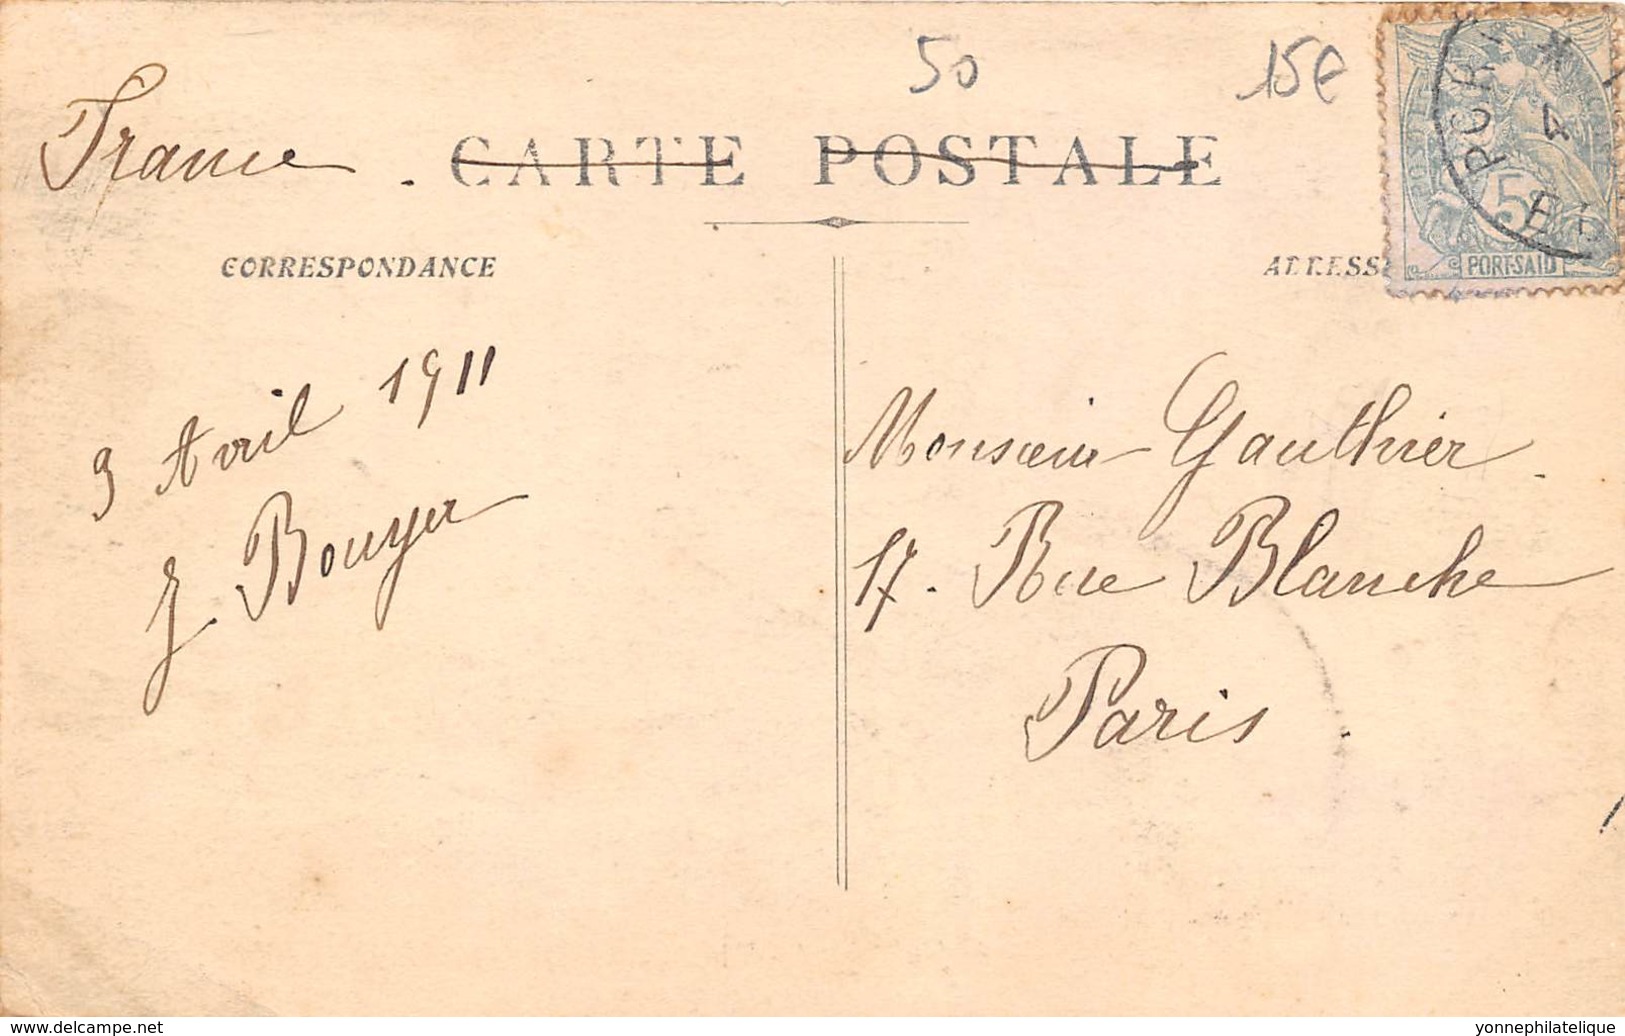 50
15€
France
CARTE POSTALE
CORRESPONDANCE
ADRESS
POSTES
5
PORT-SAID
PORT
4
3 Avril 1911
J. Bouyer
Monsieur Gauthier
17. Rue Blanche
Paris
delcampe.net
yonnephilatelique